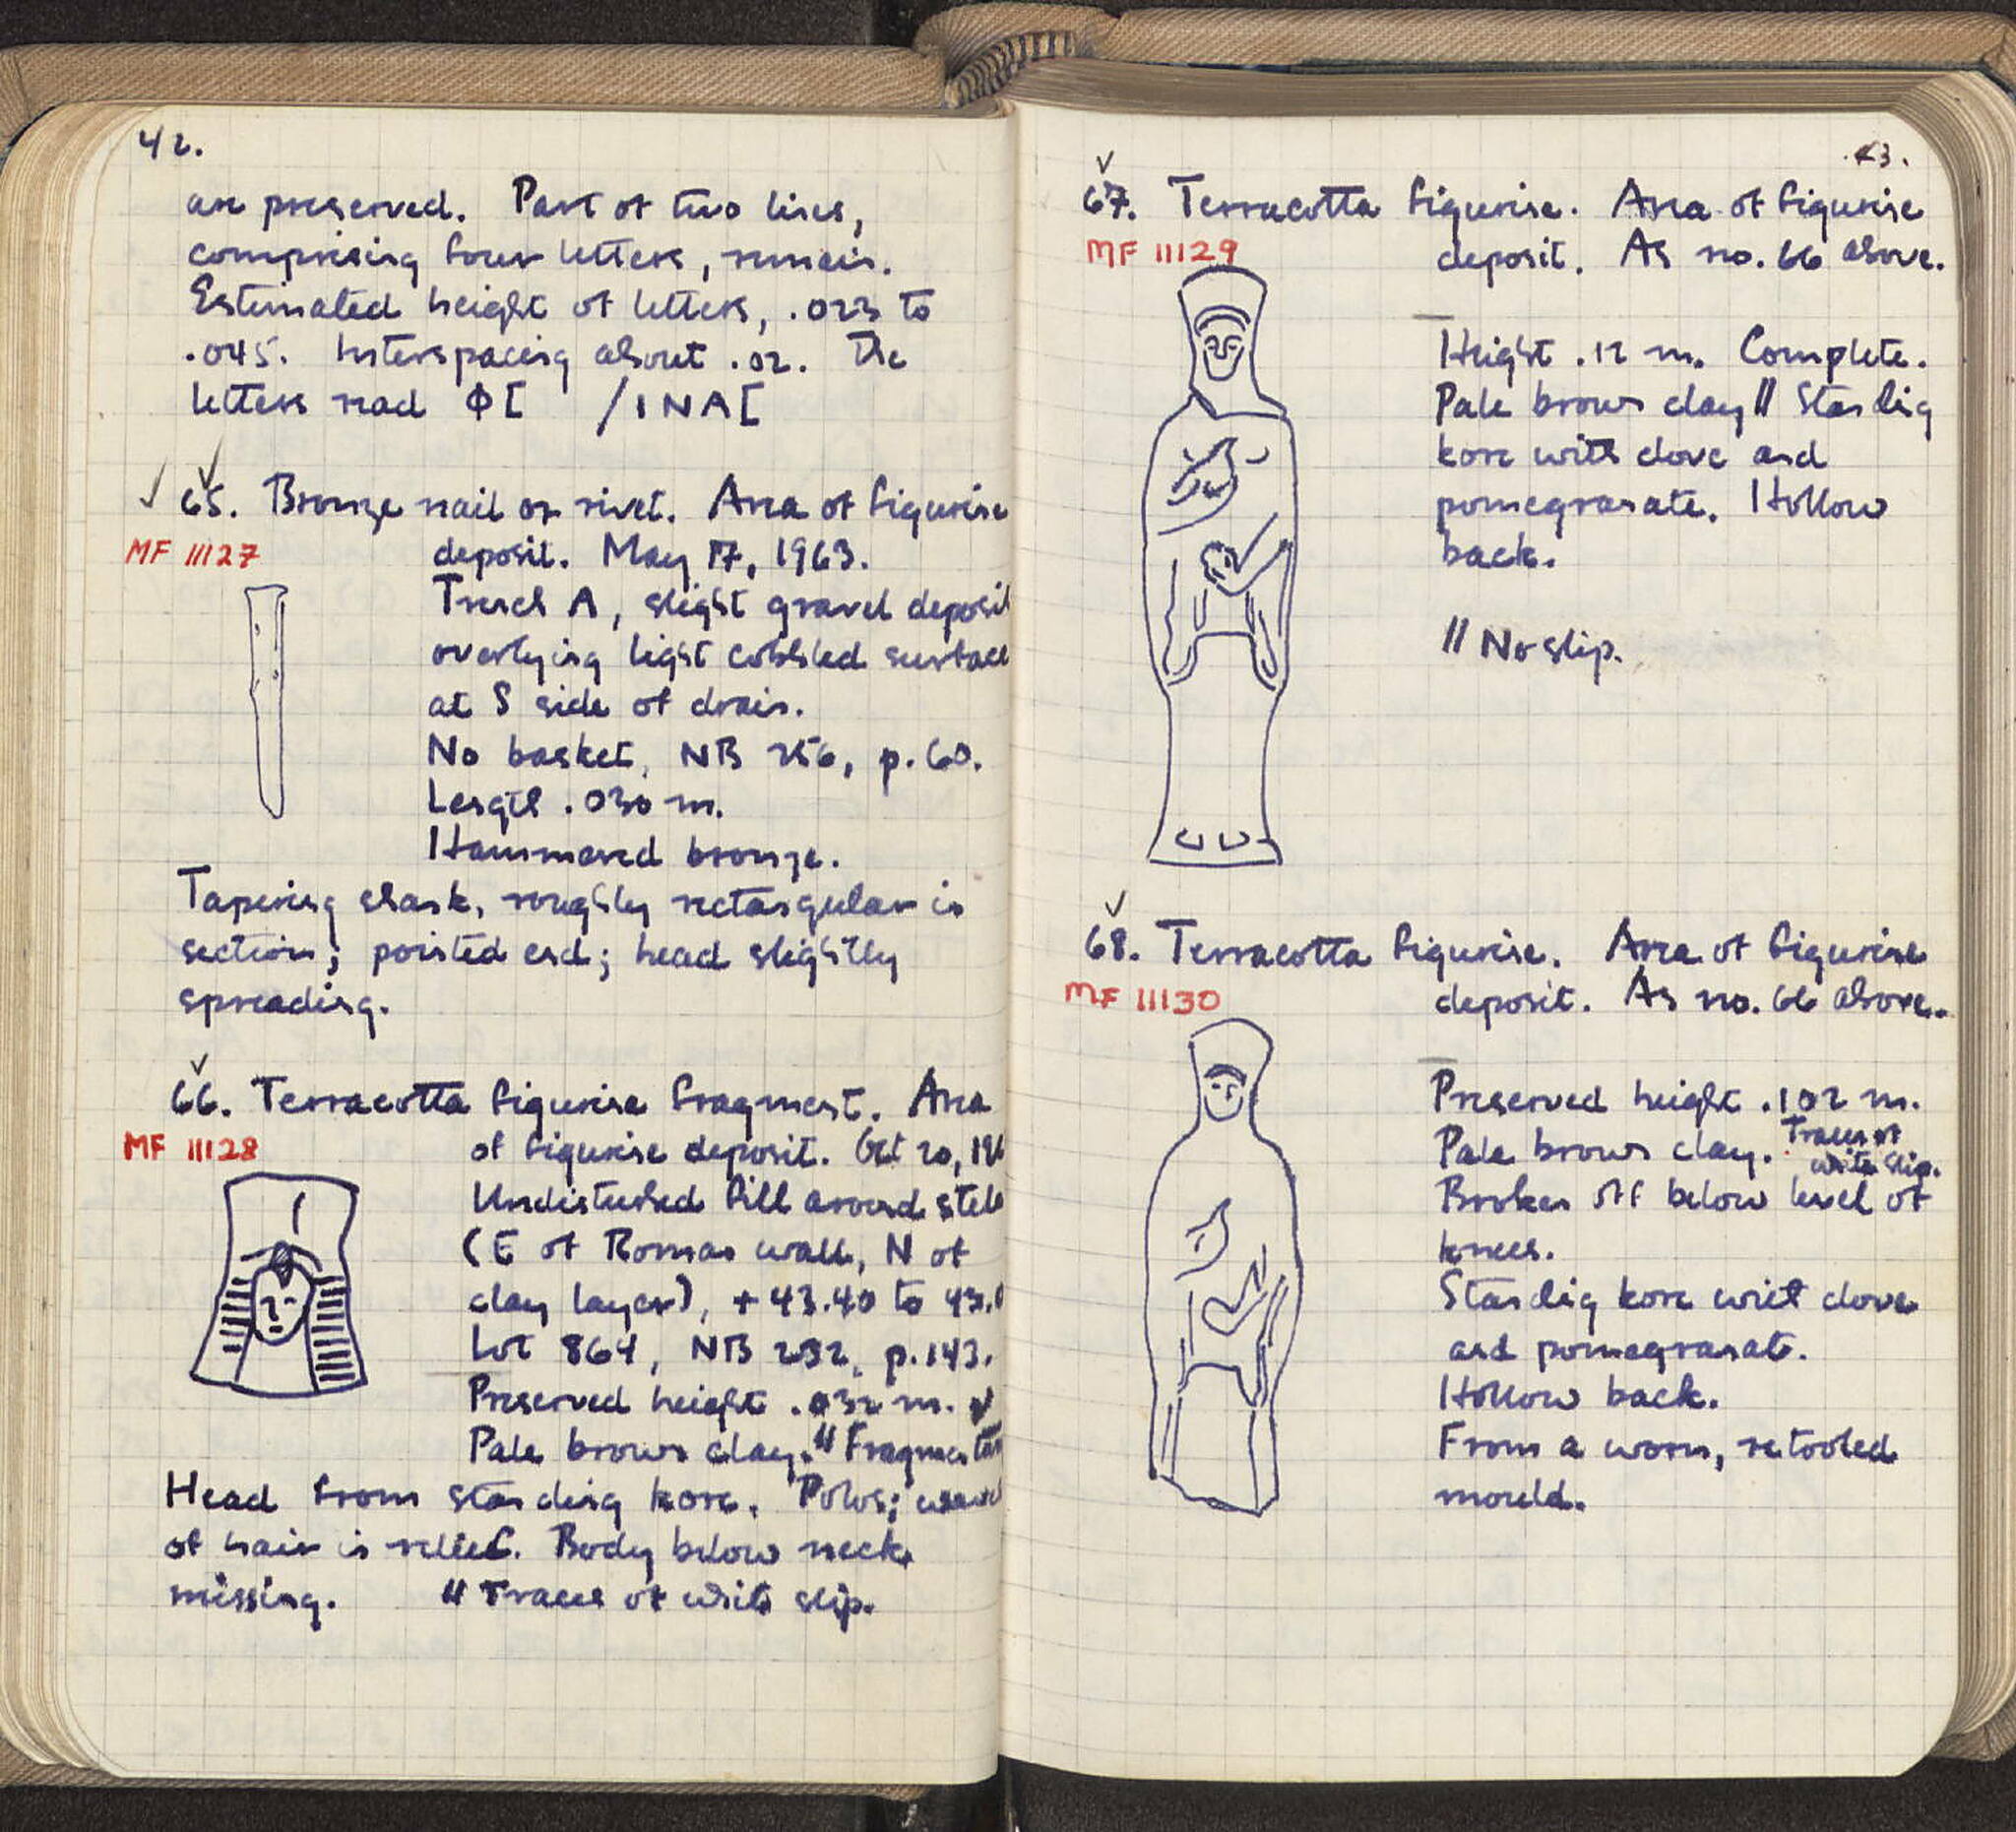 42.
are preserved. Part of two lines,
comprising four letters, remain.
Estimated height of letters, .023 to
.045. Interspacing about .02. The
letters read Φ[ /INA[
65. Bronze nail or rivet. Area of figurine
MF 11127
deposit. May 17, 1963.
Trench A, slight gravel deposit
overlying light cobbled surface
at S side of drain.
No basket, NB 256, p. 60.
Length .030 m.
Hammered bronze.
Tapering shank, roughly rectangular in
section; pointed end; head slightly
spreading.
66. Terracotta figurine fragment. Area
MF 11128
of figurine deposit. Oct 20,
Undisturbed fill around stele
(E of Roman wall, N of
clay layer), + 43.40 to
Lot 864, NB 232, p. 143.
Preserved height .032 m.
Pale brown clay. " Fragmentary
Head from standing kore. Polos;
of hair in relief. Body below neck
missing. " Traces of white slip.
43.
67. Terracotta figurine. Area of figurine
MF 11129
deposit. As no. 66 above.
Height .12 m. Complete.
Pale brown clay // Standing
kore with dove and
pomegranate. Hollow
back.
// No slip.
68. Terracotta figurine. Area of figurine
MF 11130
deposit. As no. 66 above.
Preserved height .102 m.
Pale brown clay. Traces of
white slip.
Broken off below level of
knees.
Standing kore with dove
and pomegranate.
Hollow back.
From a worn, retooled
mould.